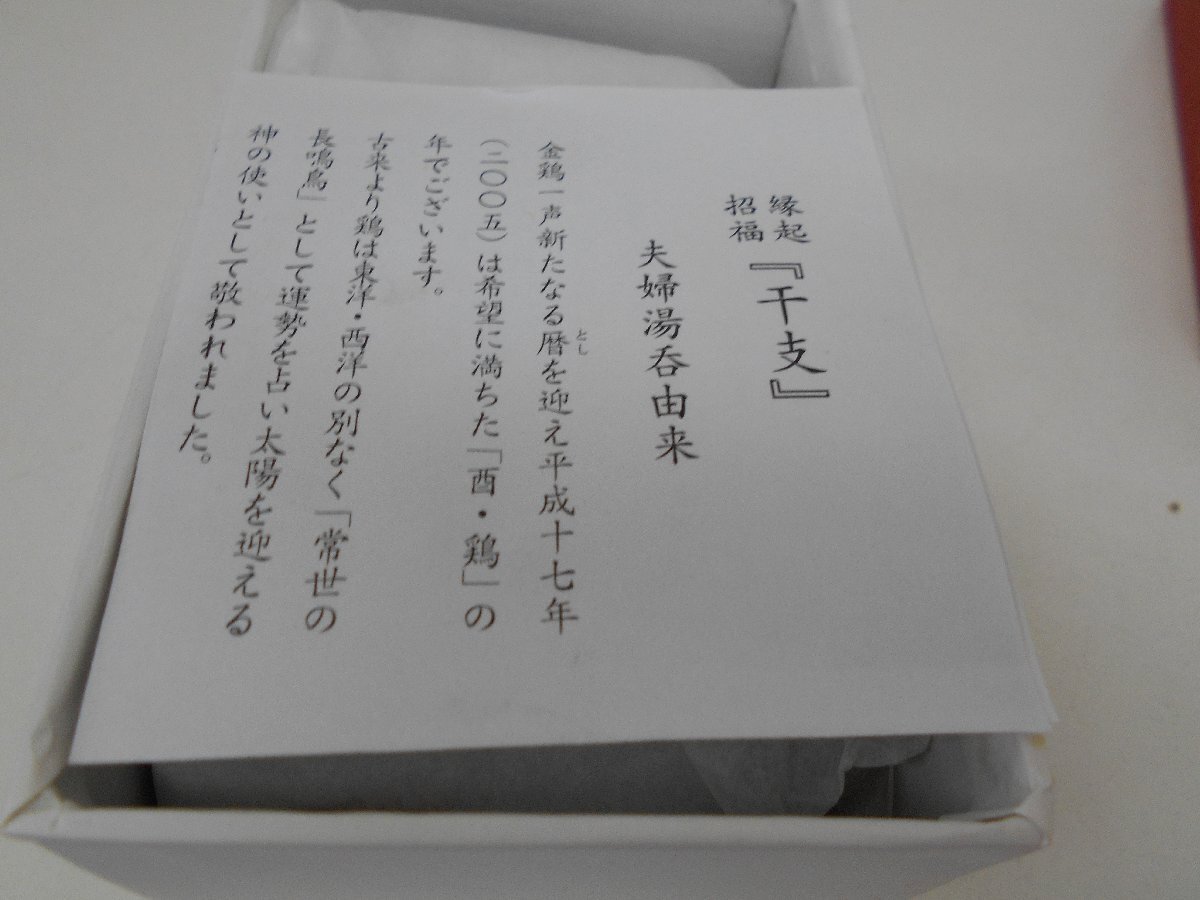 縁起
招福
『干支』
夫婦湯呑由来
金鶏一声新たなる暦を迎え平成十七年
とし
(二〇〇五)は希望に満ちた「酉・鶏」の
年でございます。
古来より鶏は東洋・西洋の別なく「常世の
長鳴鳥」として運勢を占い太陽を迎える
神の使いとして敬われました。